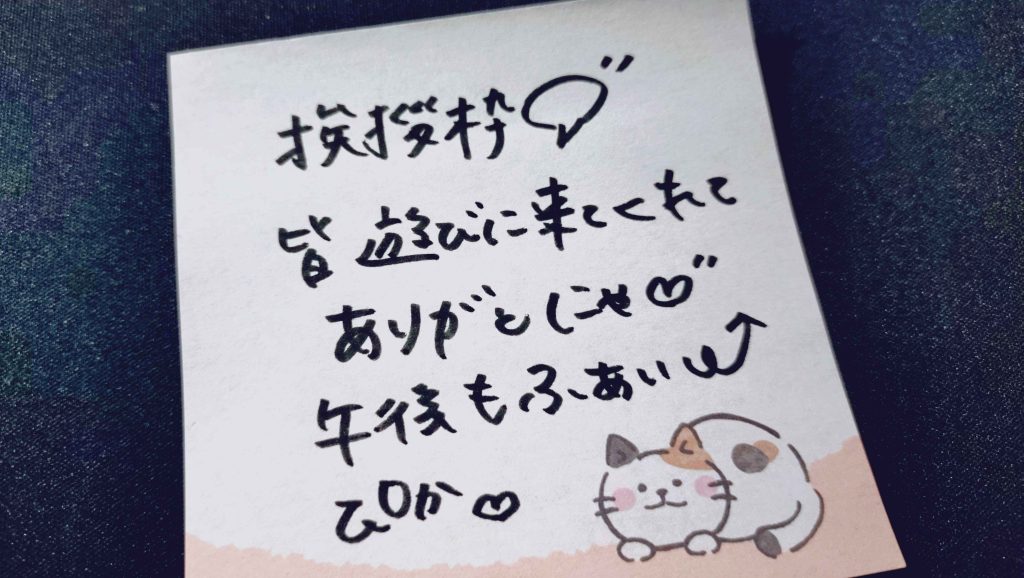 挨拶枠
皆遊びに来てくれて
ありがとにゃ♡"
午後もふぁいω↗
ぴか♡